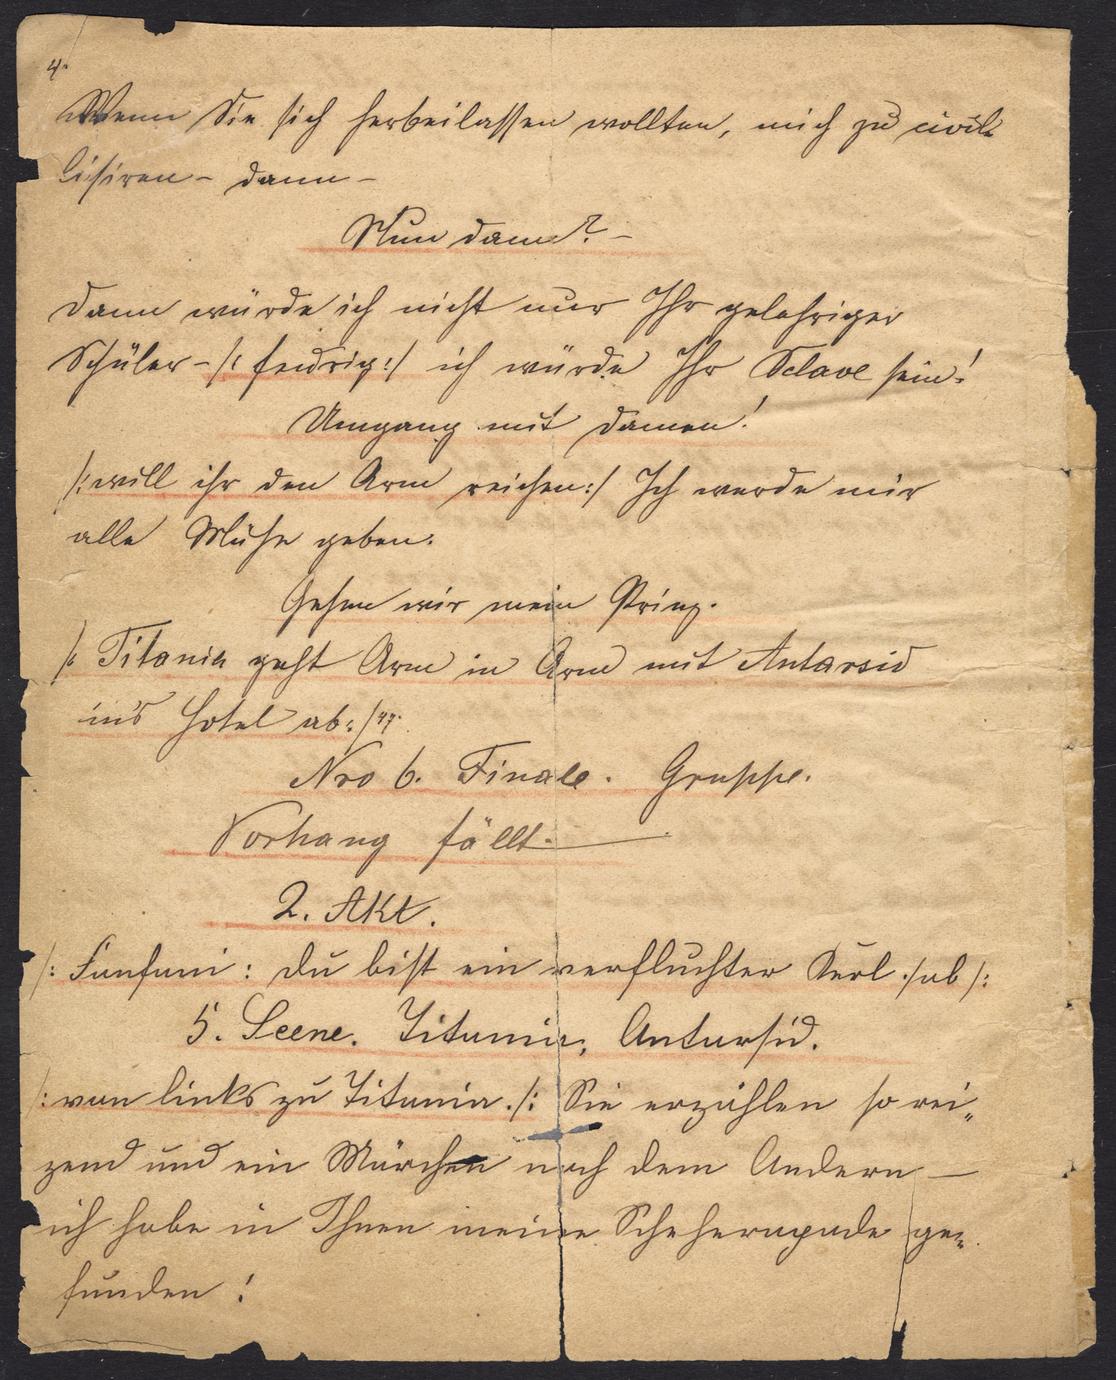 4.
Wenn Sie sich herbeilassen wollten, mich zu civi-
lisiren – dann –
Nun dann? –
Dann würde ich nicht nur Ihr gelehriger
Schüler – /: feurig :/ ich würde Ihr Sclave sein!
Umgang mit Damen!
/: will ihr den Arm reichen :/ Ich werde mir
alle Mühe geben.
Gehen wir mein Prinz.
/: Titania geht Arm in Arm mit Antarsid
ins Hotel ab :/
Nro 6. Finale. Gruppe.
Vorhang fällt. —
2. Akt.
/: Fanfani : du bist ein verfluchter Kerl ./ab/:
5. Scene. Titania, Antarsid.
/: von links zu Titania ./: Sie erzählen so rei„
zend und ein Märchen nach dem Andern —
ich habe in Ihnen meine Scheherazade ge„
funden !